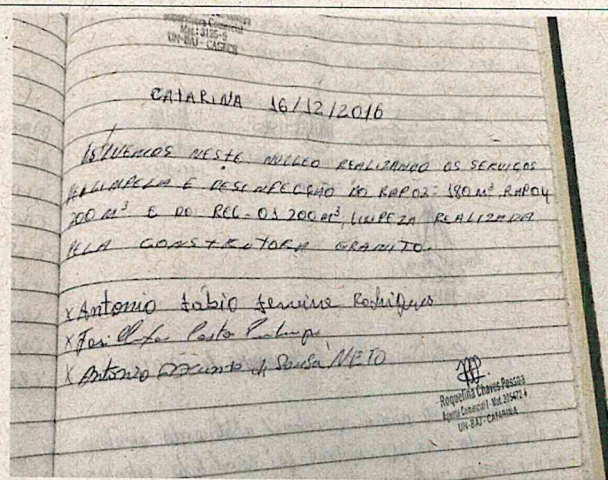 Supervisora Comercial
Mat.: 3125-9
UN-BAJ - CAGECE
CATARINA 16/12/2016
ESTIVEMOS NESTE NUCLEO REALIZANDO OS SERVIÇOS
DE LIMPEZA E DESINFECCÃO DO RAP02: 180 M³ RAP04
200 M³ E DO REL-01 200 M³, LIMPEZA REALIZADA
PELA CONSTRUTORA GRANITO.
x Antonio Fabio Rodrigues
x José Costa
x Antonio de Sousa NETO
Roquelina Chaves Pessoa
Agente Comercial I - Mat.
UN-BAJ - CATARINA